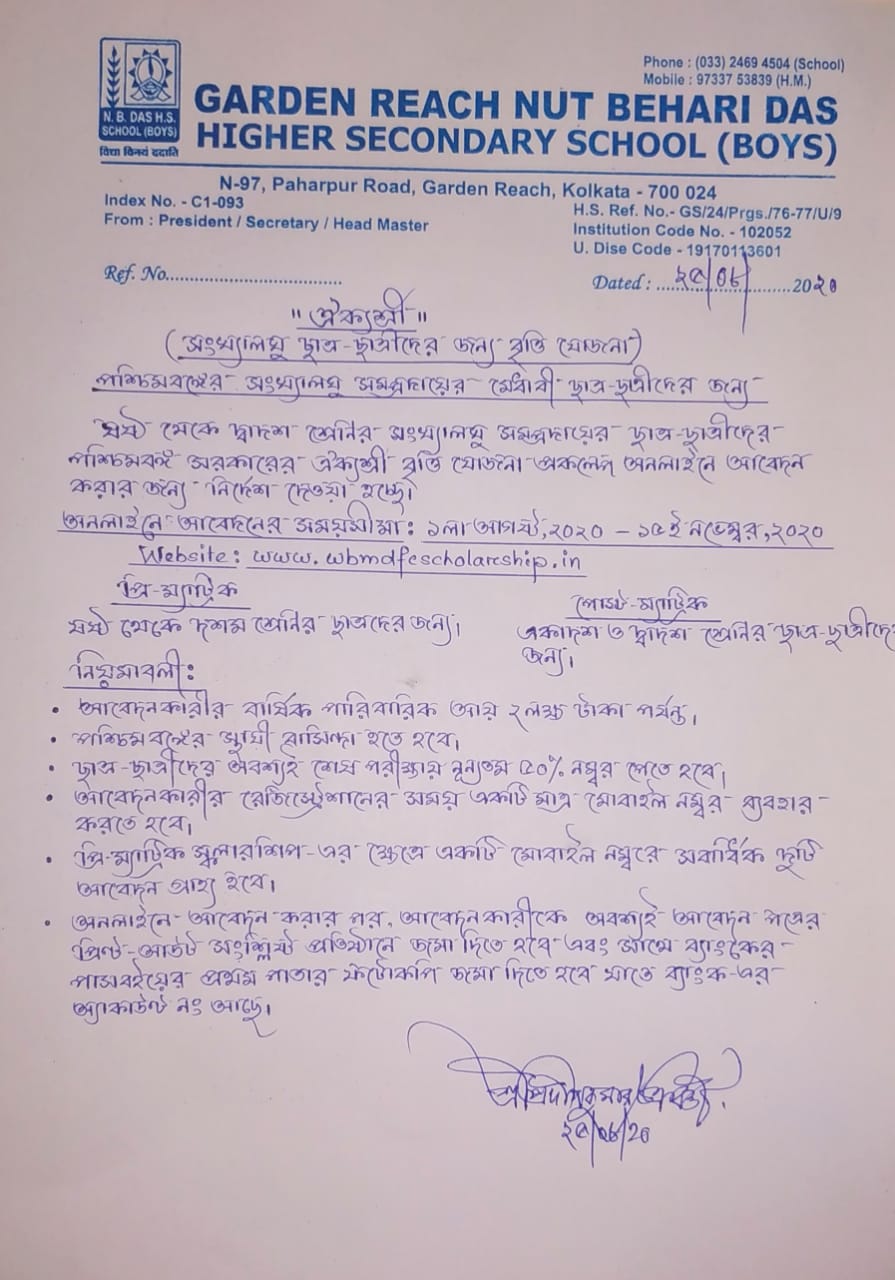 N. B. DAS H.S.
SCHOOL (BOYS)
विद्या विनयं ददाति
Phone : (033) 2469 4504 (School)
Mobile : 97337 53839 (H.M.)
GARDEN REACH NUT BEHARI DAS
HIGHER SECONDARY SCHOOL (BOYS)
N-97, Paharpur Road, Garden Reach, Kolkata - 700 024
Index No. - C1-093
From : President / Secretary / Head Master
H.S. Ref. No.- GS/24/Prgs./76-77/U/9
Institution Code No. - 102052
U. Dise Code - 19170113601
Ref. No.....................................
Dated : ২৫/০৮/2020
"ঐক্যশ্রী"
(সংখ্যালঘু ছাত্র-ছাত্রীদের জন্য বৃত্তি যোজনা)
পশ্চিমবঙ্গের সংখ্যালঘু সম্প্রদায়ের মেধাবী ছাত্র-ছাত্রীদের জন্য
ষষ্ঠ থেকে দ্বাদশ শ্রেনির সংখ্যালঘু সম্প্রদায়ের ছাত্র-ছাত্রীদের
পশ্চিমবঙ্গ সরকারের ঐক্যশ্রী বৃত্তি যোজনা প্রকল্পে অনলাইনে আবেদন
করার জন্য নির্দেশ দেওয়া হচ্ছে।
অনলাইনে আবেদনের সময়সীমা: ১লা আগস্ট, ২০২০ – ১৫ই নভেম্বর, ২০২০
Website: www.wbmdfcscholarship.in
প্রি-ম্যাট্রিক
ষষ্ঠ থেকে দশম শ্রেনির ছাত্রদের জন্য।
পোস্ট-ম্যাট্রিক
একাদশ ও দ্বাদশ শ্রেনির ছাত্র-ছাত্রীদের
জন্য।
নিয়মাবলী:
• আবেদনকারীর বার্ষিক পারিবারিক আয় ২লক্ষ টাকা পর্যন্ত।
• পশ্চিমবঙ্গের স্থায়ী বাসিন্দা হতে হবে।
• ছাত্র-ছাত্রীদের অবশ্যই শেষ পরীক্ষায় নূন্যতম ৫০% নম্বর পেতে হবে।
• আবেদনকারীর রেজিস্ট্রেশানের সময় একটি মাত্র মোবাইল নম্বর ব্যবহার
করতে হবে।
• প্রি-ম্যাট্রিক স্কলারশিপ-এর ক্ষেত্রে একটি মোবাইল নম্বরে সর্বাধিক দুটি
আবেদন গ্রাহ্য হবে।
• অনলাইনে আবেদন করার পর, আবেদনকারীকে অবশ্যই আবেদন পত্রের
প্রিন্ট-আউট সংশ্লিষ্ট প্রতিষ্ঠানে জমা দিতে হবে এবং সাথে ব্যাংকের
পাসবইয়ের প্রথম পাতার ফটোকপি জমা দিতে হবে যাতে ব্যাংক-এর
অ্যাকাউন্ট নং আছে।
২৫/০৮/২০